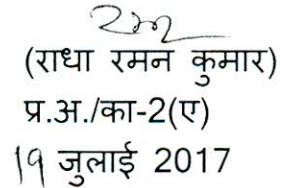 (राधा रमन कुमार)
प्र.अ./का-2(ए)
19 जुलाई 2017